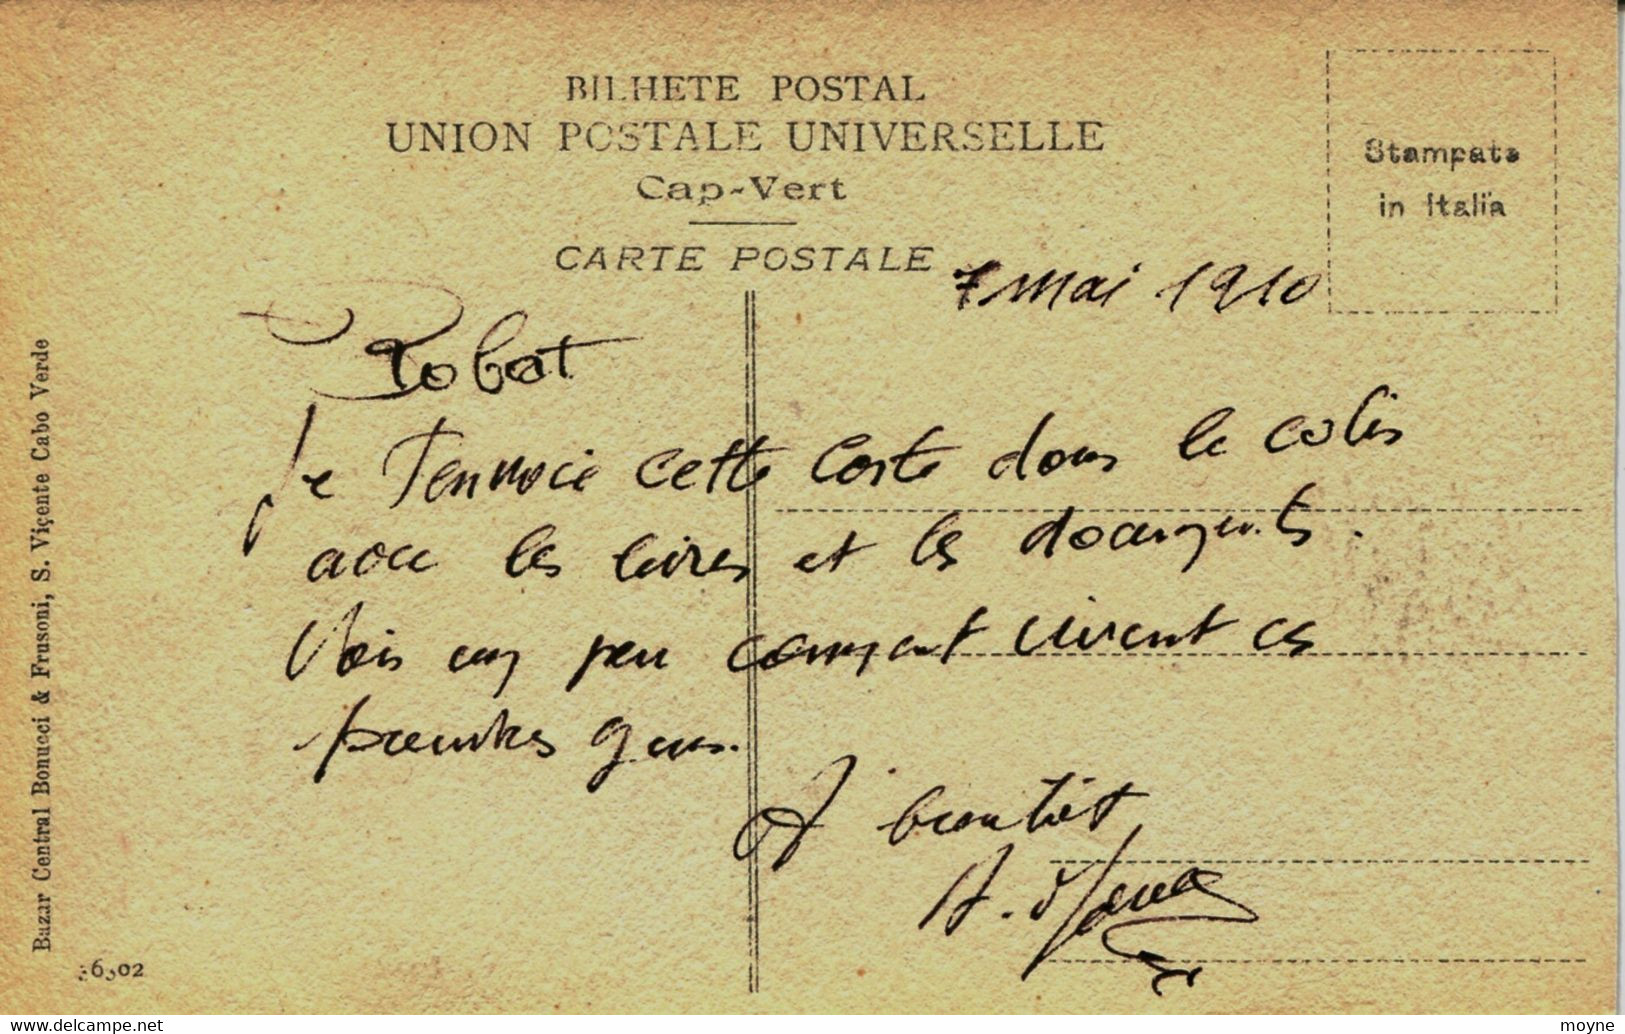 BILHETE POSTAL
UNION POSTALE UNIVERSELLE
Cap-Vert
CARTE POSTALE
Stampata
in Italia
7 mai 1910
Robert
Je t'envoie cette carte dans le colis
avec les livres et les documents.
Vois un peu comment vivent ces
pauvres gens.
A bientôt
A.
Bazar Central Bonucci & Frusoni, S. Viçente Cabo Verde
36302
delcampe.net
moyne